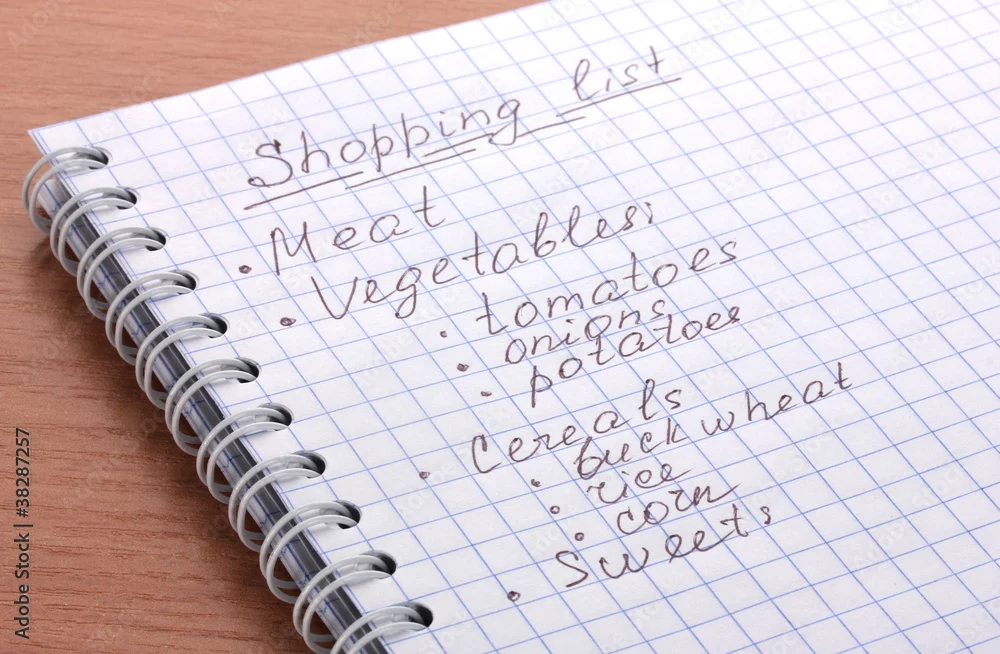 Shopping list
• Meat
• Vegetables:
• tomatoes
• onions
• potatoes
• Cereals
• buckwheat
• rice
• corn
• Sweets
Adobe Stock | #38287257